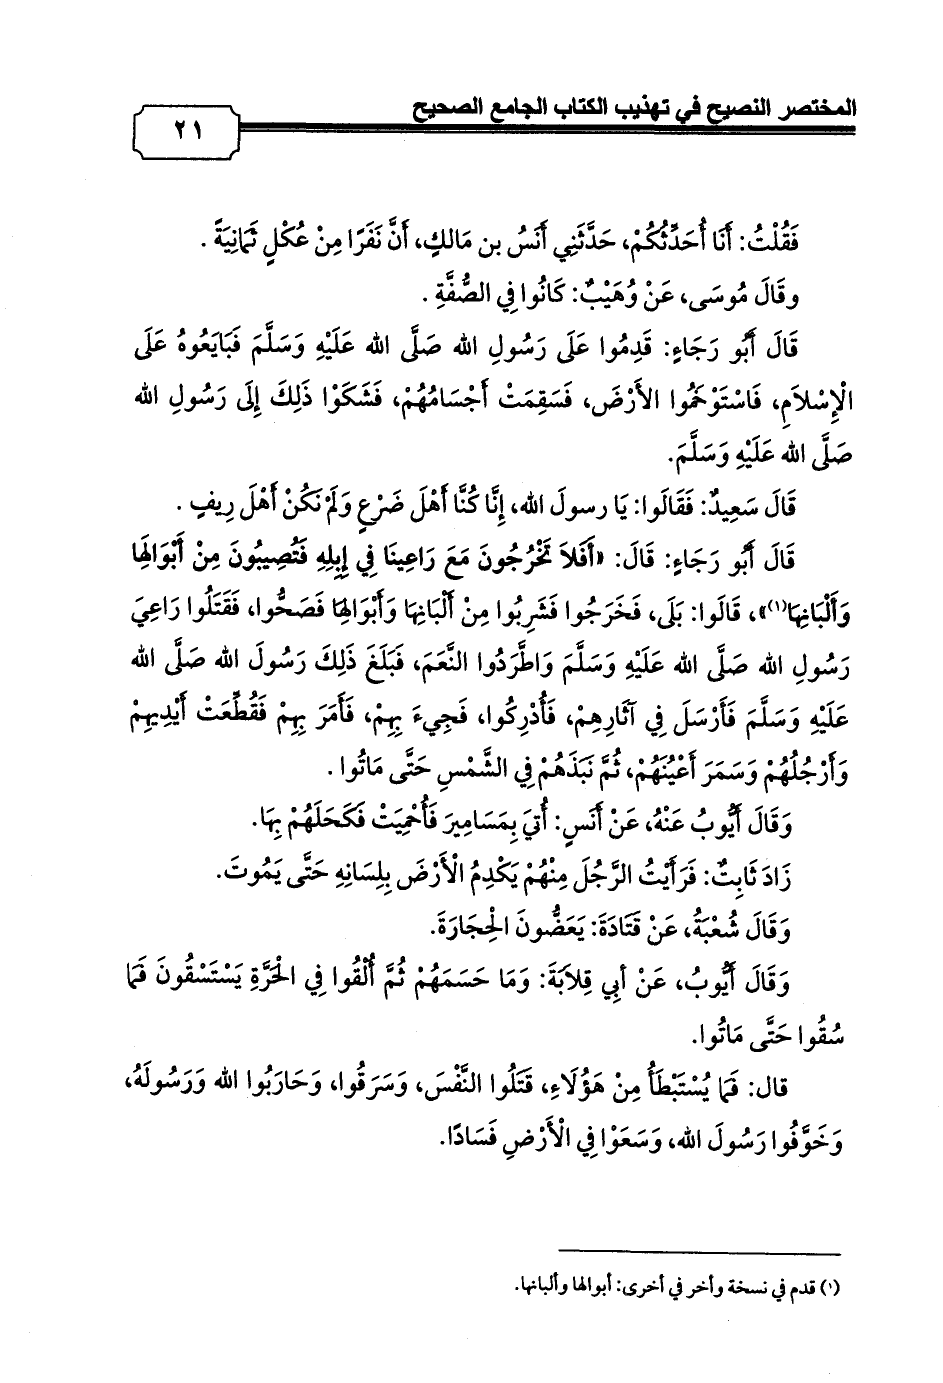 المختصر النصيح في تهذيب الكتاب الجامع الصحيح
٢١
فَقُلْتُ: أَنَا أُحَدِّثُكُمْ، حَدَّثَنِي أَنَسُ بن مَالكٍ، أَنَّ نَفَرًا مِنْ عُكْلٍ ثَمَانِيَةً .
وقَالَ مُوسَى، عَنْ وُهَيْبٌ: كَانُوا فِي الصُّفَّةِ .
قَالَ أَبُو رَجَاءٍ: قَدِمُوا عَلَى رَسُولِ الله صَلَّى الله عَلَيْهِ وَسَلَّمَ فَبَايَعُوهُ عَلَى
الْإِسْلاَمِ، فَاسْتَوْخَمُوا الأَرْضَ، فَسَقِمَتْ أَجْسَامُهُمْ، فَشَكَوْا ذَلِكَ إِلَى رَسُولِ الله
صَلَّى الله عَلَيْهِ وَسَلَّمَ.
قَالَ سَعِيدٌ: فَقَالُوا: يَا رسولَ الله، إِنَّا كُنَّا أَهْلَ ضَرْعٍ وَلَمْ نَكُنْ أَهْلَ رِيفٍ .
قَالَ أَبُو رَجَاءٍ: قَالَ: «أَفَلاَ تَخْرُجُونَ مَعَ رَاعِينَا فِي إِبِلِهِ فَتُصِيبُونَ مِنْ أَبْوَالِهَا
وَأَلْبَانِهَا(١)»، قَالُوا: بَلَى، فَخَرَجُوا فَشَرِبُوا مِنْ أَلْبَانِهَا وَأَبْوَالِهَا فَصَحُّوا، فَقَتَلُوا رَاعِيَ
رَسُولِ الله صَلَّى الله عَلَيْهِ وَسَلَّمَ وَاطَّرَدُوا النَّعَمَ، فَبَلَغَ ذَلِكَ رَسُولَ الله صَلَّى الله
عَلَيْهِ وَسَلَّمَ فَأَرْسَلَ فِي آثَارِهِمْ، فَأُدْرِكُوا، فَجِيءَ بِهِمْ، فَأَمَرَ بِهِمْ فَقُطِّعَتْ أَيْدِيهِمْ
وَأَرْجُلُهُمْ وَسَمَرَ أَعْيُنَهُمْ، ثُمَّ نَبَذَهُمْ فِي الشَّمْسِ حَتَّى مَاتُوا .
وَقَالَ أَيُّوبُ عَنْهُ، عَنْ أَنَسٍ: أُتِيَ بِمَسَامِيرَ فَأُحْمِيَتْ فَكَحَلَهُمْ بِهَا.
زَادَ ثَابِتٌ: فَرَأَيْتُ الرَّجُلَ مِنْهُمْ يَكْدِمُ الْأَرْضَ بِلِسَانِهِ حَتَّى يَمُوتَ.
وَقَالَ شُعْبَةُ، عَنْ قَتَادَةَ: يَعَضُّونَ الْحِجَارَةَ.
وَقَالَ أَيُّوبُ، عَنْ أَبِي قِلاَبَةَ: وَمَا حَسَمَهُمْ ثُمَّ أُلْقُوا فِي الْحَرَّةِ يَسْتَسْقُونَ فَمَا
سُقُوا حَتَّى مَاتُوا.
قال: فَمَا يُسْتَبْطَأُ مِنْ هَؤُلَاءِ، قَتَلُوا النَّفْسَ، وَسَرَقُوا، وَحَارَبُوا الله وَرَسُولَهُ،
وَخَوَّفُوا رَسُولَ الله، وَسَعَوْا فِي الْأَرْضِ فَسَادًا.
(١) قدم في نسخة وأخر في أخرى: أبوالها وألبانها.